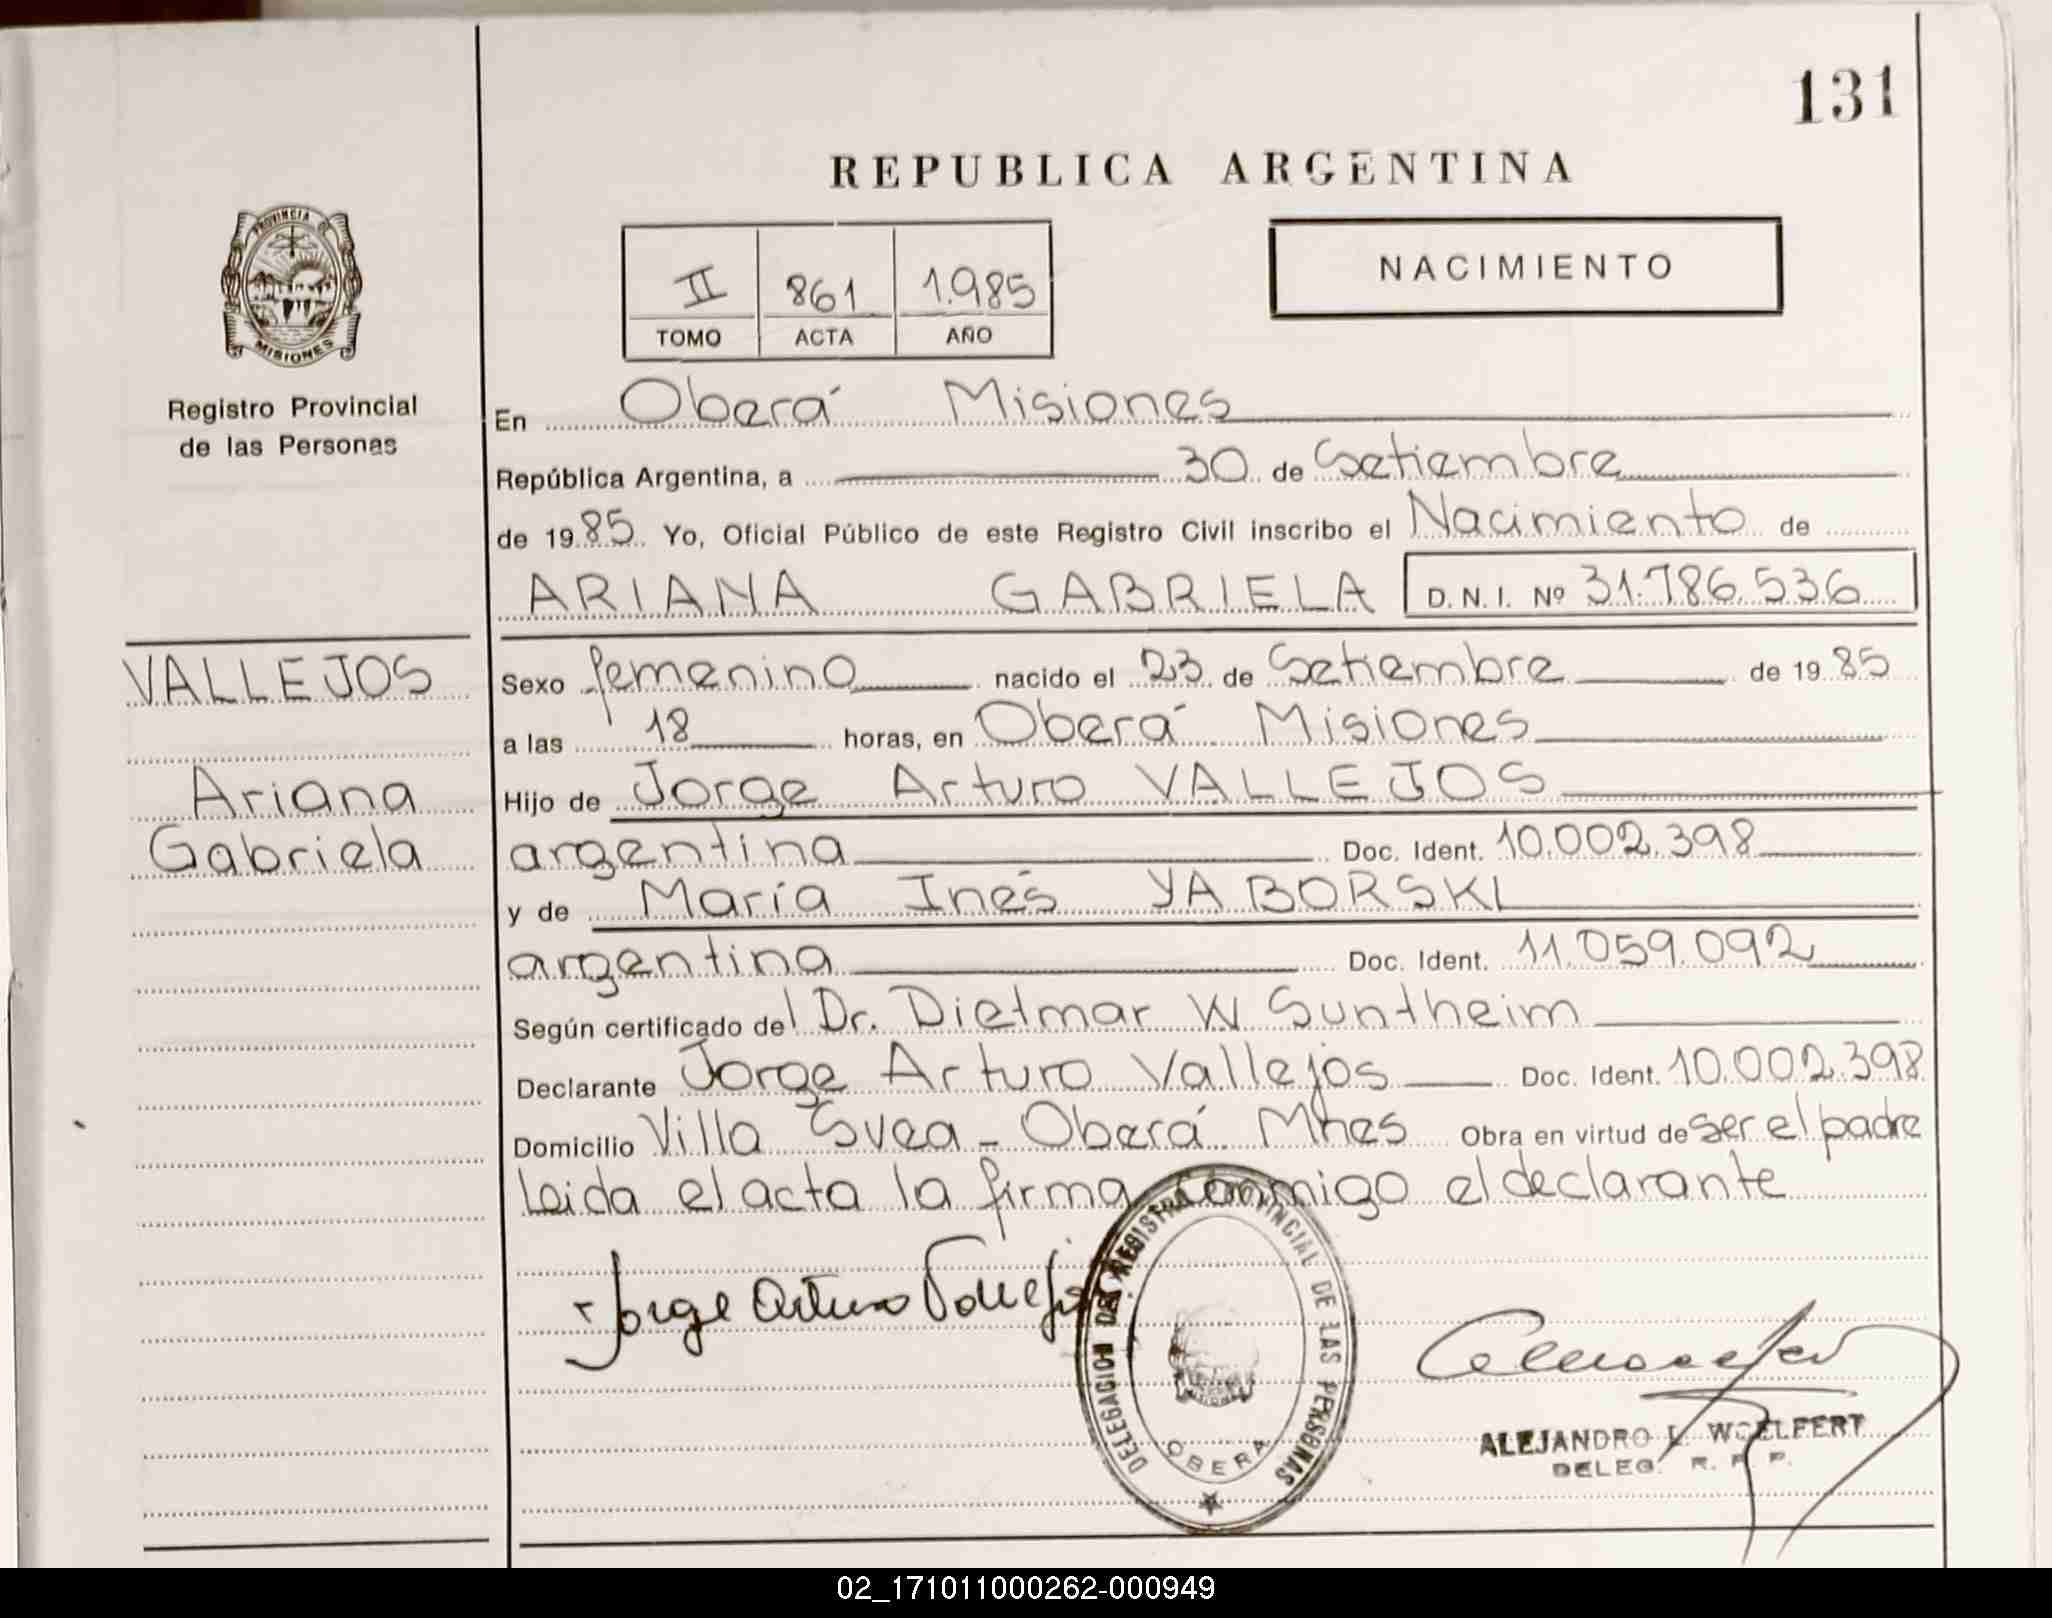 131
REPUBLICA ARGENTINA
PROVINCIA DE
MISIONES
Registro Provincial
de las Personas
II 861 1.985
TOMO ACTA AÑO
NACIMIENTO
En Oberá Misiones
República Argentina, a 30 de Setiembre
de 1985 Yo, Oficial Público de este Registro Civil inscribo el Nacimiento de
ARIANA GABRIELA D.N.I. Nº 31.786.536
VALLEJOS
Ariana
Gabriela
Sexo femenino nacido el 23 de Setiembre de 1985
a las 18 horas, en Oberá Misiones
Hijo de Jorge Arturo VALLEJOS
argentina Doc. Ident. 10.002.398
y de María Inés YABORSKI
argentina Doc. Ident. 11.059.092
Según certificado del Dr. Dietmar W Suntheim
Declarante Jorge Arturo Vallejos Doc. Ident. 10.002.398
Domicilio Villa Svea - Oberá Mnes Obra en virtud de ser el padre
Leida el acta la firma conmigo el declarante
Jorge Arturo Vallejos
DELEGACION DEL REGISTRO PROVINCIAL DE LAS PERSONAS
OBERA
ALEJANDRO L. WOELFERT
DELEG. R. P. P.
02_171011000262-000949